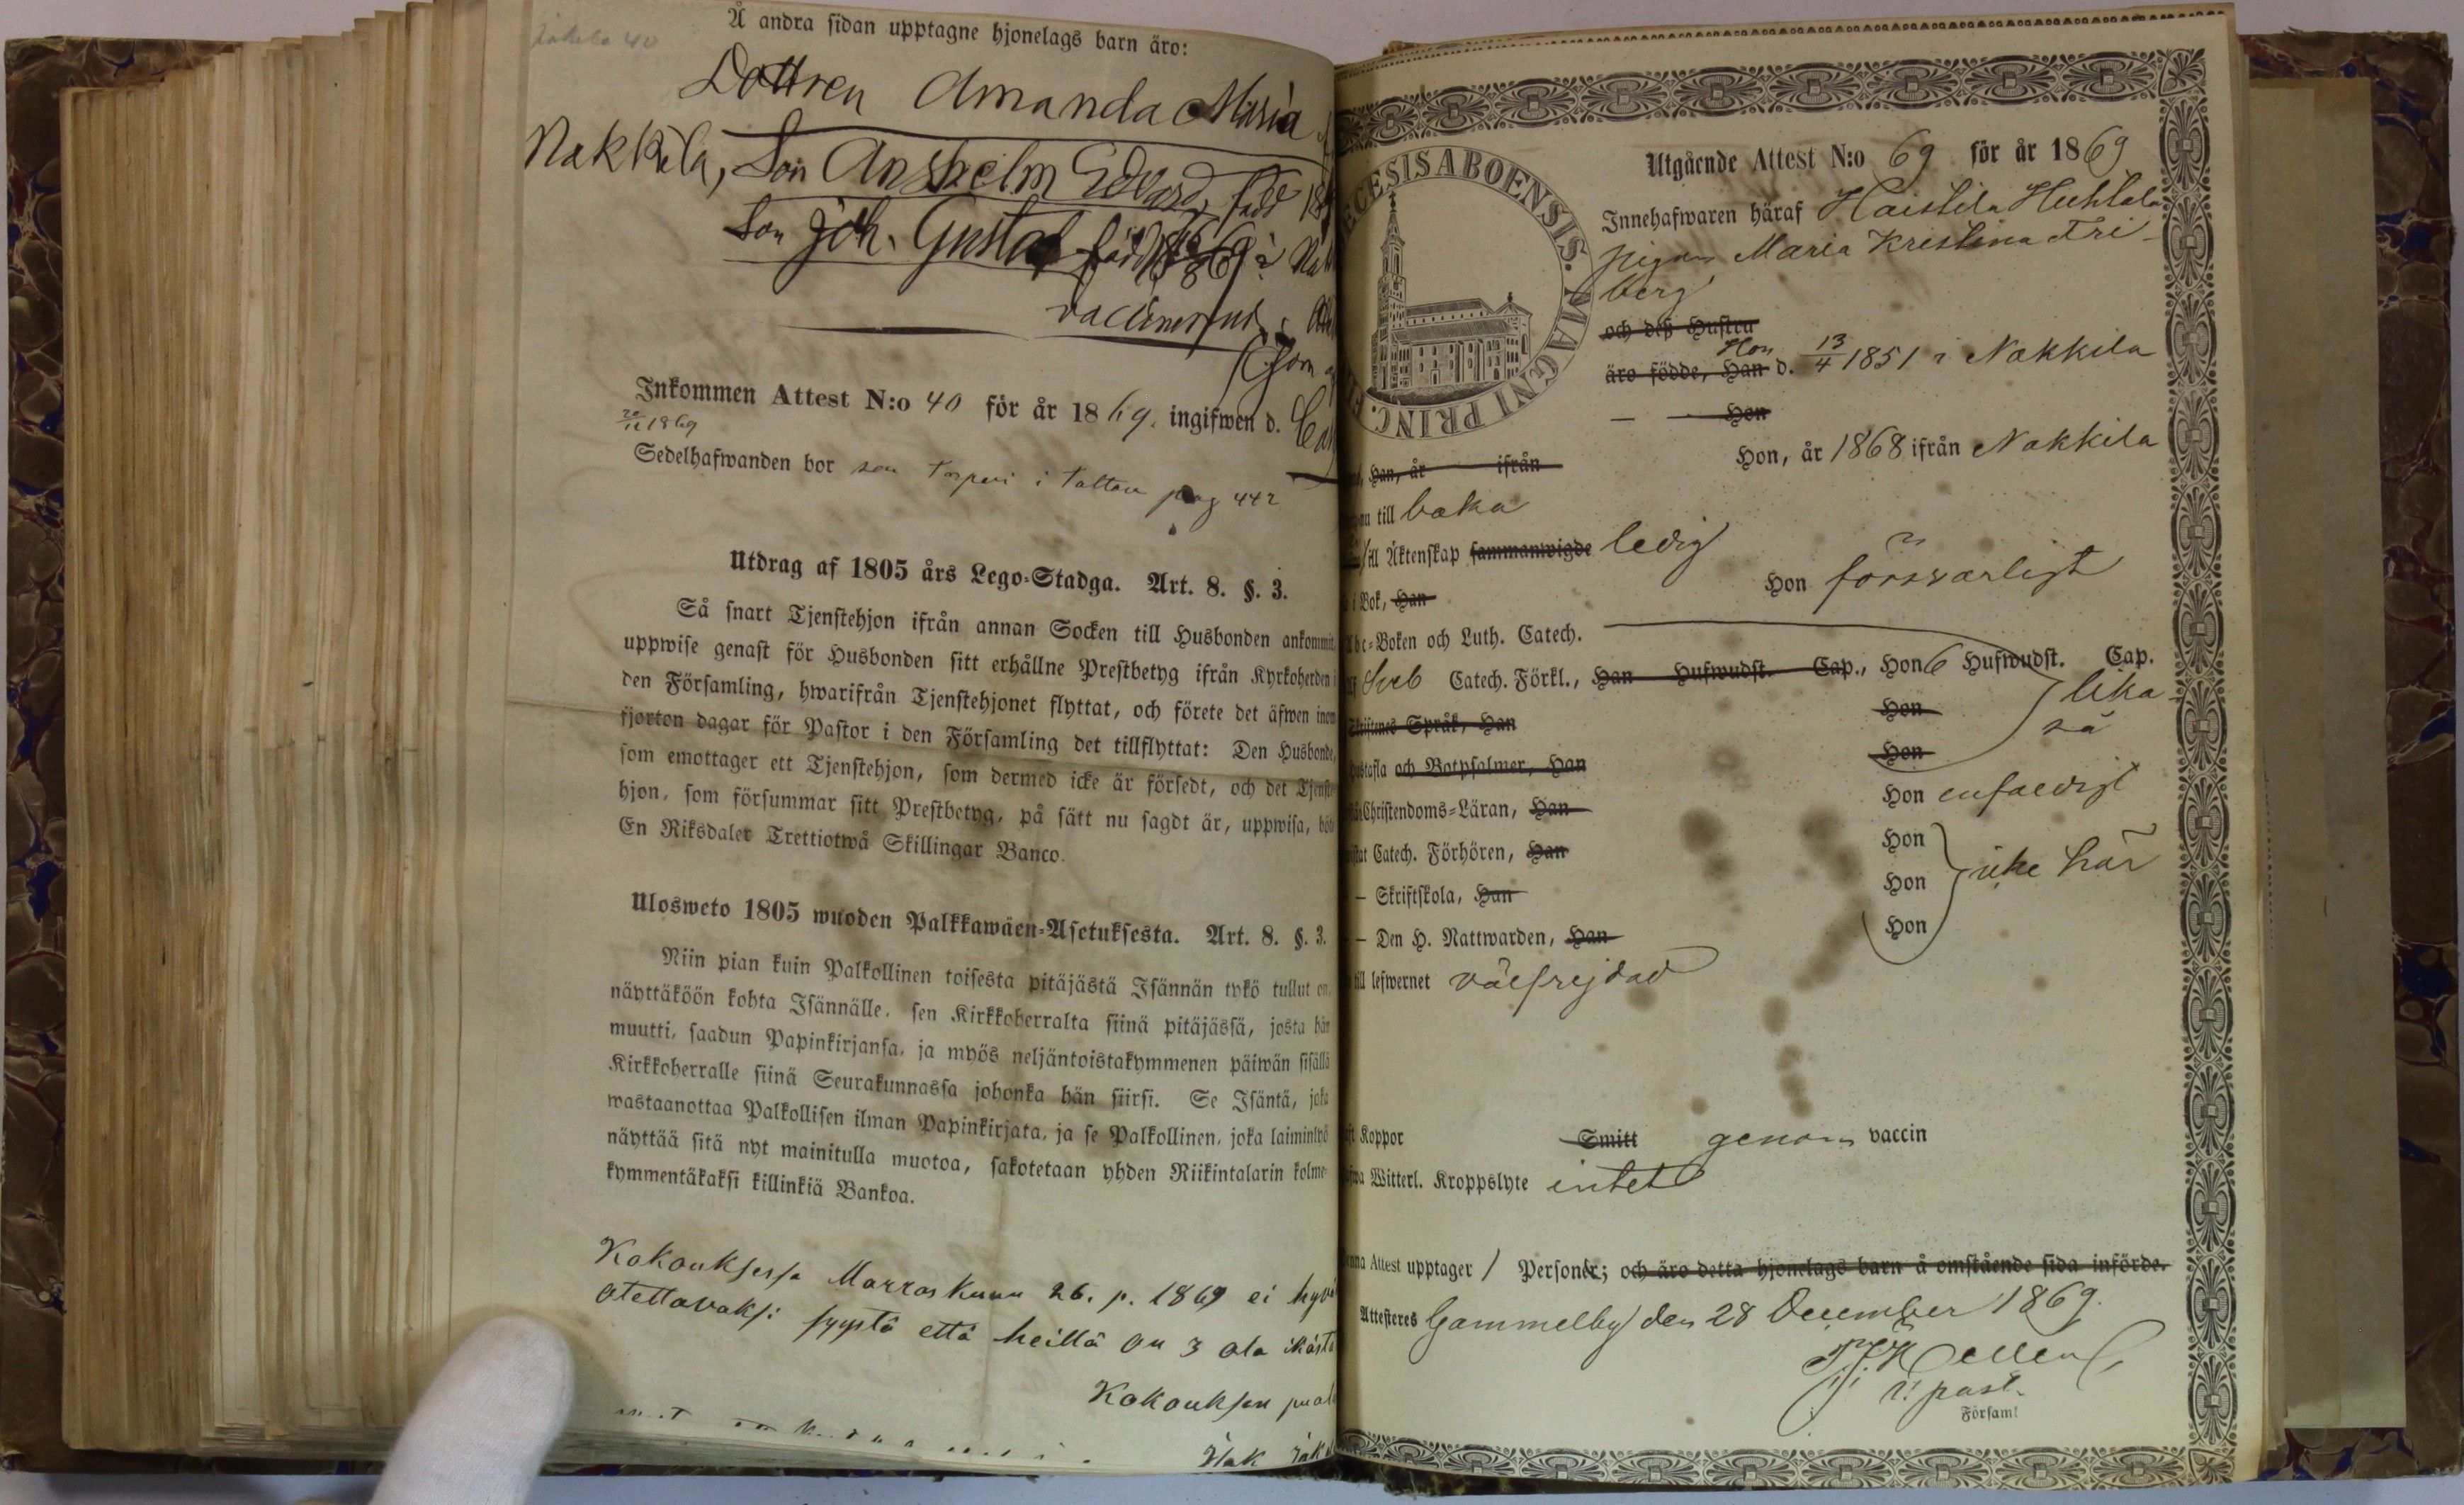 Å andra sidan upptagne hjonelags barn äro:
Dottren Amanda Maria
Nakkila, Son Anshelm Edvard, född
Son Joh. Gustaf född
Inkommen Attest N:o 40 för år 1869. ingifwen d.
1869
Sedelhafwanden bor som i pag 442
Utdrag af 1805 års Lego-Stadga. Art. 8. §. 3.
Så snart Tjenstehjon ifrån annan Socken till Husbonden ankommit,
uppwise genast för Husbonden sitt erhållne Prestbetyg ifrån Kyrkoherden i
den Församling, hwarifrån Tjenstehjonet flyttat, och förete det äfwen inom
fjorton dagar för Pastor i den Församling det tillflyttat: Den Husbonde,
som emottager ett Tjenstehjon, som dermed icke är försedt, och det Tjenste-
hjon, som försummar sitt Prestbetyg, på sätt nu sagdt är, uppwisa, böte
En Riksdaler Trettiotwå Skillingar Banco.
Ulosweto 1805 wuoden Palkkawäen-Asetuksesta. Art. 8. §. 3.
Niin pian kuin Palkollinen toisesta pitäjästä Isännän tykö tullut on,
näyttäköön kohta Isännälle, sen Kirkkoherralta siinä pitäjässä, josta hän
muutti, saadun Papinkirjansa, ja myös neljäntoistakymmenen päiwän sisällä
Kirkkoherralle siinä Seurakunnassa johonka hän siirsi. Se Isäntä, joka
wastaanottaa Palkollisen ilman Papinkirjata, ja se Palkollinen, joka laiminlyö
näyttää sitä nyt mainitulla muotoa, sakotetaan yhden Riikintalarin kolme-
kymmentäkaksi killinkiä Bankoa.
Kokouksessa Marraskuun 26. p. 1869 ei
otettavaksi syystä että heillä on 3 ala ikästä
Kokouksen
DIOECESIS ABOENSIS. MAGNI PRINC.
Utgående Attest N:o 69 för år 1869
Innehafwaren häraf Haistila Huhtala
pigan Maria Kristina Fri-
berg
och deß Hustru
Hon
äro födde, Han d. 13/4 1851 i Nakkila
Hon
Han, år ifrån Hon, år 1868 ifrån Nakkila
nu till baka
till Äktenskap sammanwigde ledig
i Bok, Han Hon försvarligt
Abc-Boken och Luth. Catech.
Sveb Catech. Förkl., Han Hufwudst. Cap., Hon 6 Hufwudst. Cap.
lika
Skriftenes Språk, Han Hon
så
Hustafla och Botpsalmer, Han Hon
Christendoms-Läran, Han Hon enfaldigt
Catech. Förhören, Han Hon
icke här
– Skriftskola, Han Hon
– Den H. Nattwarden, Han Hon
till lefwernet välfrejdad
Koppor Smitt genom vaccin
Witterl. Kroppslyte intet
Attest upptager 1 Person; och äro detta hjonelags barn å omstående sida införde.
Attesteres Gammelby den 28 December 1869.
past.
Församl